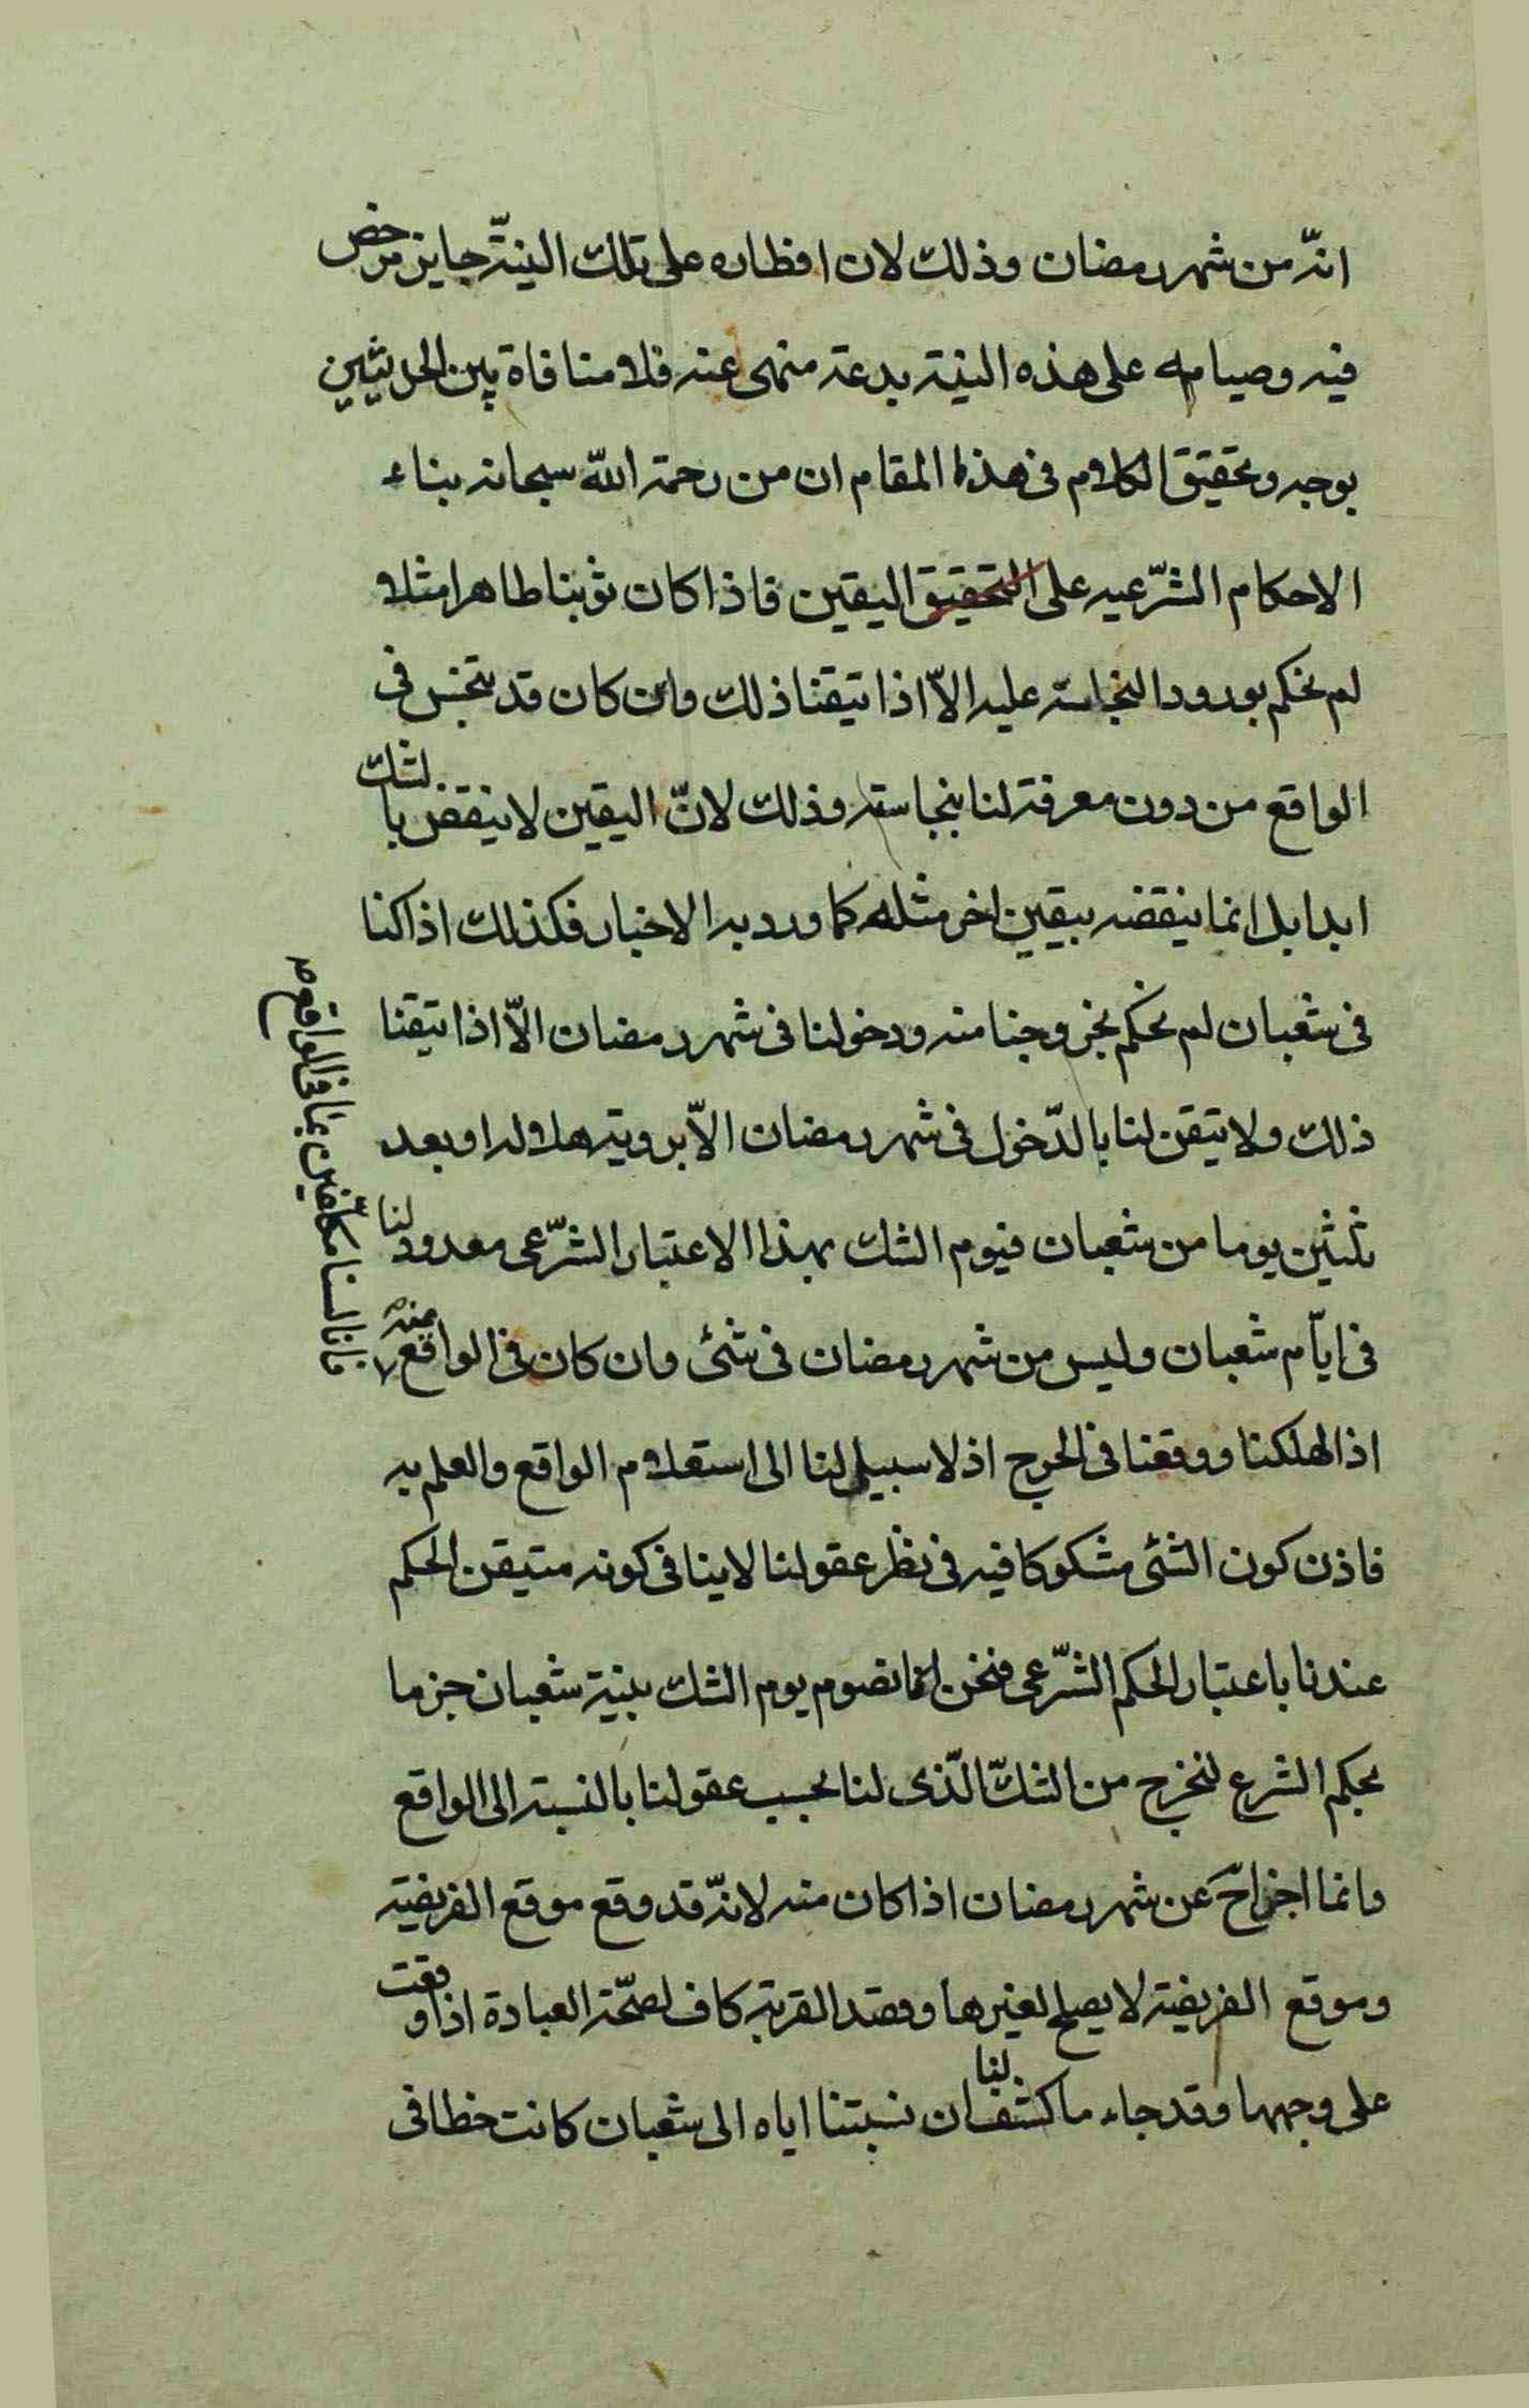 انّه من شهر رمضان وذلك لان افطاره على تلك النيّة جايز مرخص
فيه وصيامه على هذه النية بدعة منهى عنه فلا منافاة بين الحديثين
بوجه وتحقيق الكلام فى هذا المقام ان من رحمة الله سبحانه بناء
الاحكام الشّرعيه على التحقيق اليقين فاذا كان ثوبنا طاهرا مثلا
لم نحكم بورود النجاسة عليه الاّ اذا تيقنا ذلك وان كان قد تنجس فى
الواقع من دون معرفة لنا بنجاسته وذلك لانّ اليقين لا ينقض بالشك
ابدا بل انما ينقضه بيقين اخر مثله كما ورد به الاخبار فكذلك اذا كنا
فى شعبان لم نحكم بخروجنا منه ودخولنا فى شهر رمضان الاّ اذا تيقنا
ذلك ولا تيقن لنا بالدّخول فى شهر رمضان الاّ بروية هلاله او بعد
ثلثين يوما من شعبان فيوم الشك بهذا الاعتبار الشّرعى معدود لنا
فى ايّام شعبان وليس من شهر رمضان فى شئ وان كان فى الواقع منه
فانا لسنا مكلّفين بما فى الواقع
اذا لهلكنا ووقعنا فى الحرج اذ لا سبيل لنا الى استعلام الواقع والعلم به
فاذن كون الشئ مشكوكا فيه فى نظر عقولنا لا ينافى كونه متيقن الحكم
عندنا باعتبار الحكم الشّرعى فنحن انما نصوم يوم الشك بنية شعبان جزما
بحكم الشرع لنخرج من الشكّ الّذى لنا بحسب عقولنا بالنسبة الى الواقع
وانما اجزاح عن شهر رمضان اذا كان منه لانّه قد وقع موقع الفريضة
وموقع الفريضة لا يصلح لغيرها وقصد القربة كاف لصحّة العبادة اذا وقعت
على وجهها وقد جاء ما كشف لنا ان نسبتنا اياه الى شعبان كانت خطا فى